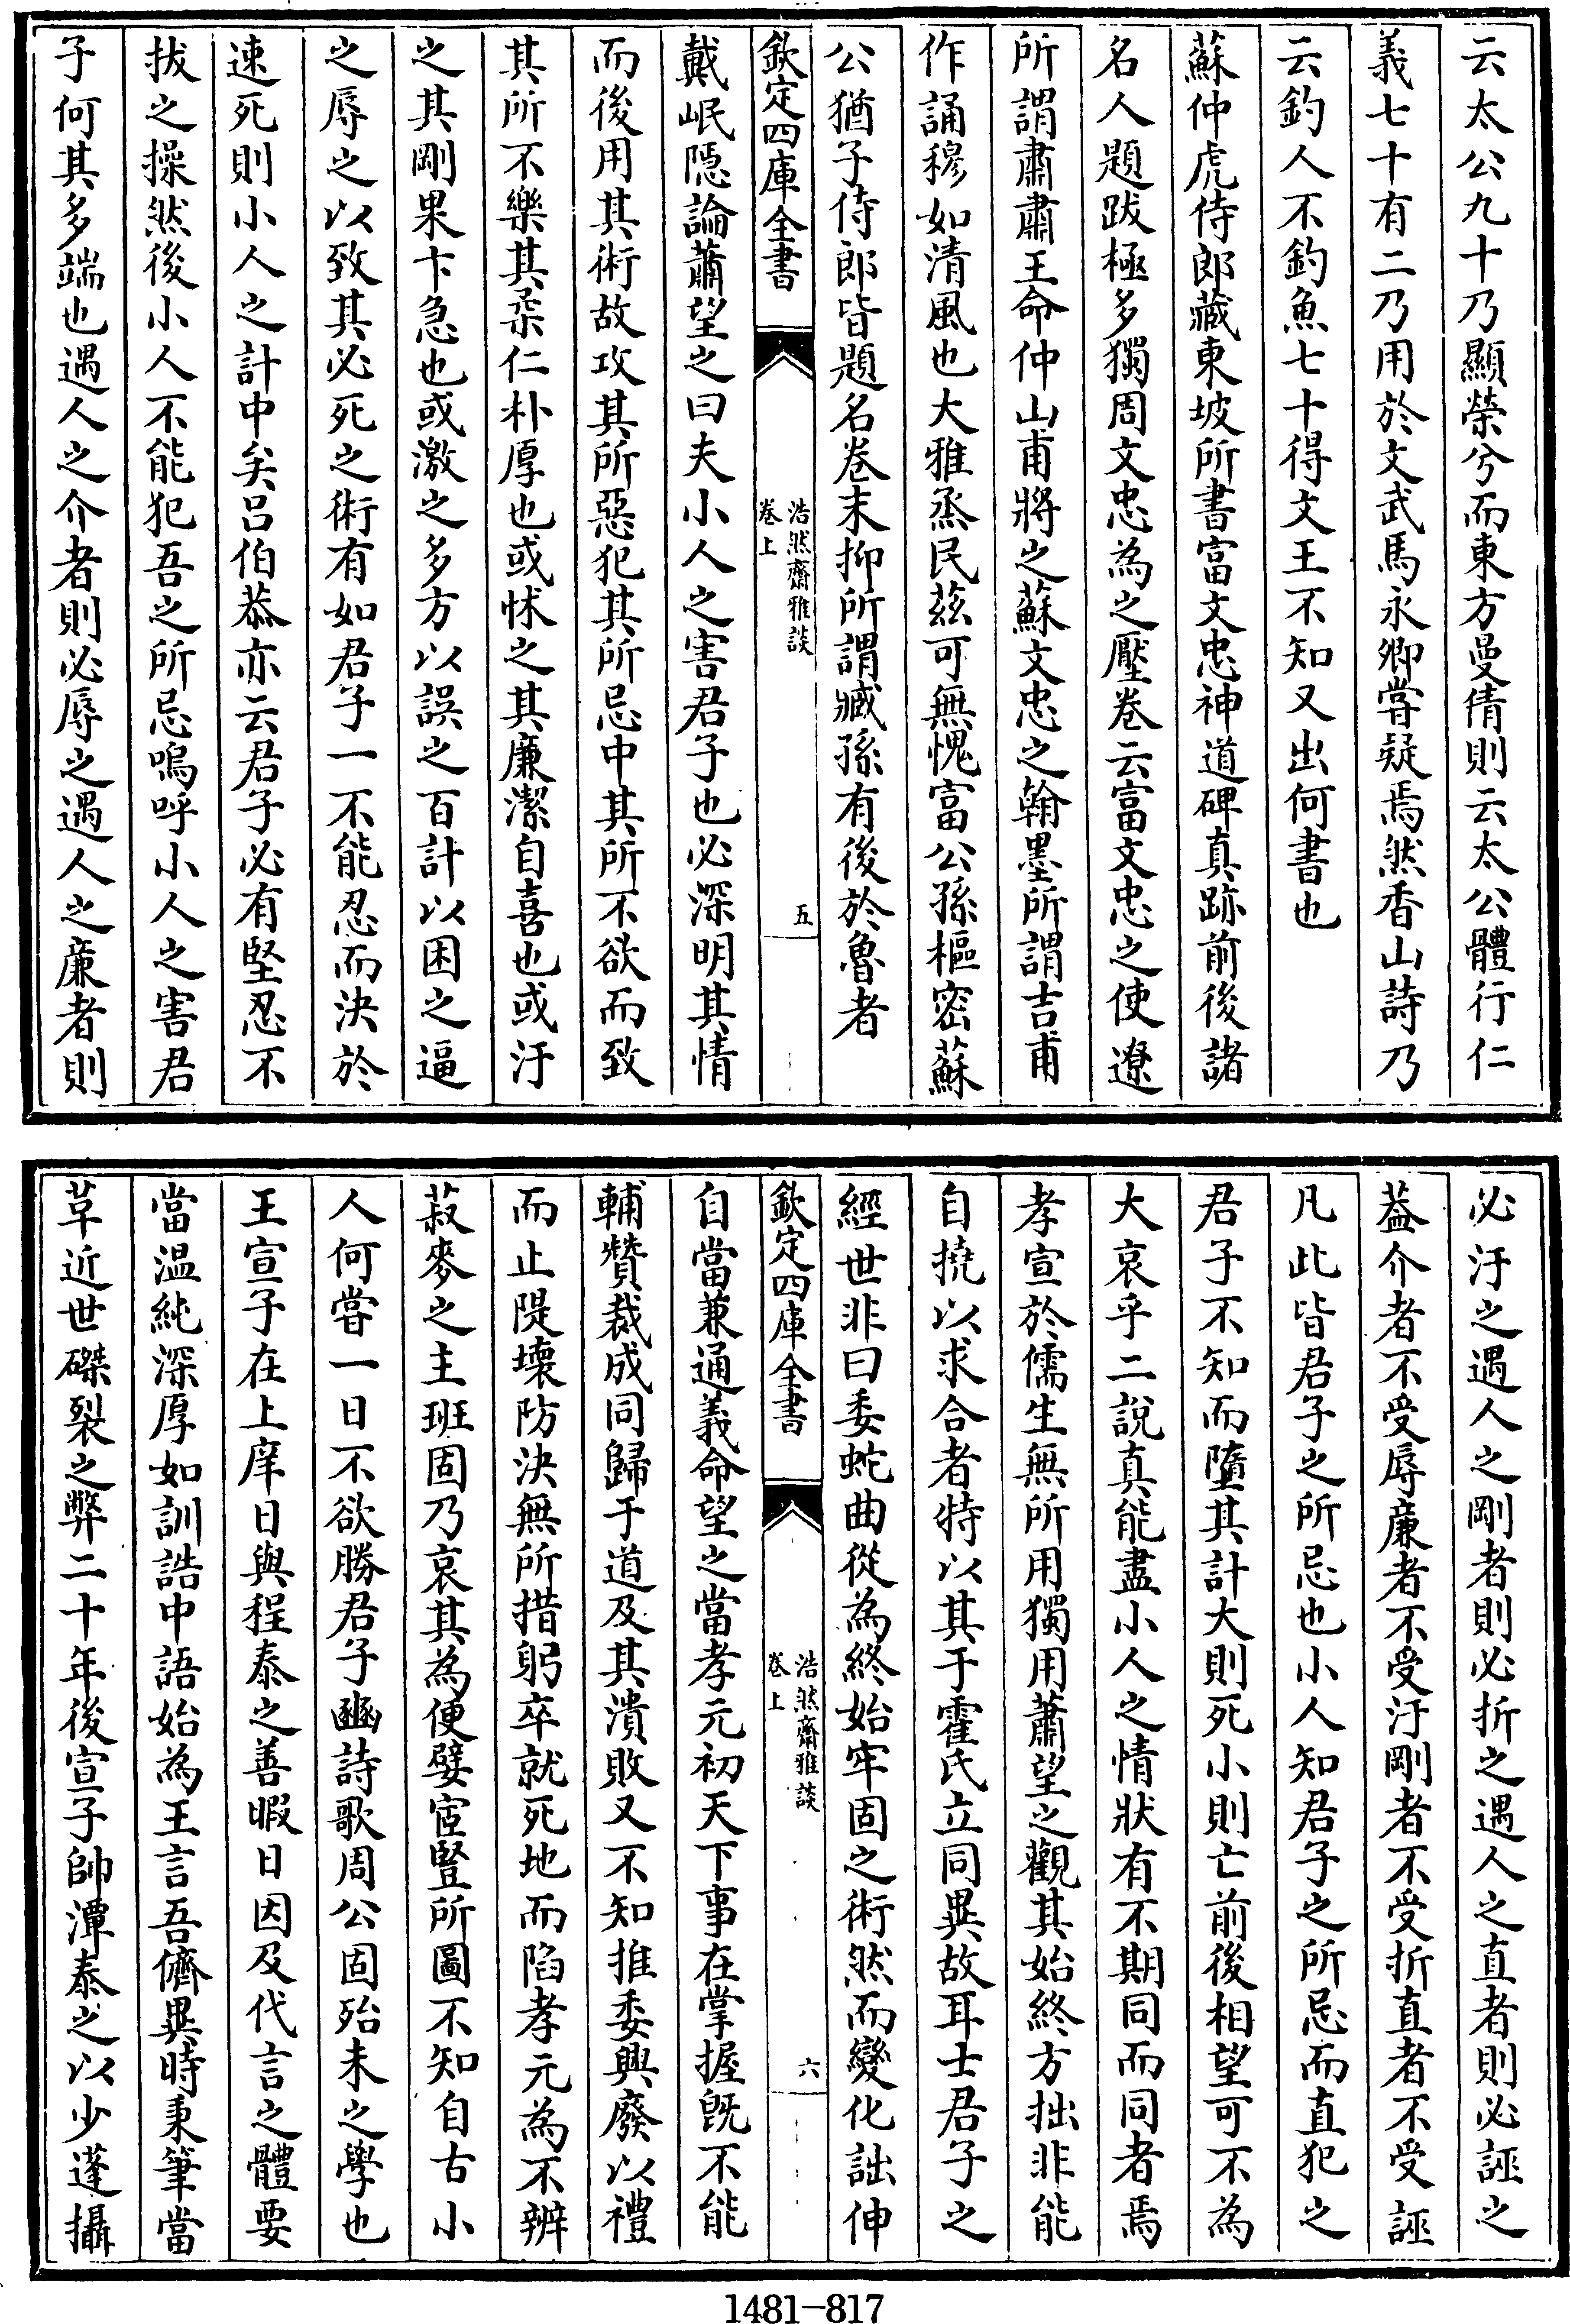 云太公九十乃顯榮兮而東方曼倩則云太公體行仁
義七十有二乃用於文武馬永卿嘗疑焉然香山詩乃
云釣人不釣魚七十得文王不知又出何書也
蘇仲虎侍郎藏東坡所書富文忠神道碑真跡前後諸
名人題跋極多獨周文忠為之壓卷云富文忠之使遼
所謂肅肅王命仲山甫將之蘇文忠之翰墨所謂吉甫
作誦穆如清風也大雅烝民茲可無愧富公孫樞密蘇
公猶子侍郎皆題名卷末抑所謂臧孫有後於魯者
欽定四庫全書
浩然齋雅談
卷上
五
戴岷隱論蕭望之曰夫小人之害君子也必深明其情
而後用其術故攻其所惡犯其所忌中其所不欲而致
其所不樂其柔仁朴厚也或怵之其廉潔自喜也或汙
之其剛果卞急也或激之多方以誤之百計以困之逼
之辱之以致其必死之術有如君子一不能忍而決於
速死則小人之計中矣呂伯恭亦云君子必有堅忍不
拔之操然後小人不能犯吾之所忌嗚呼小人之害君
子何其多端也遇人之介者則必辱之遇人之廉者則
必汙之遇人之剛者則必折之遇人之直者則必誣之
蓋介者不受辱廉者不受汙剛者不受折直者不受誣
凡此皆君子之所忌也小人知君子之所忌而直犯之
君子不知而墮其計大則死小則亡前後相望可不為
大哀乎二說真能盡小人之情狀有不期同而同者焉
孝宣於儒生無所用獨用蕭望之觀其始終方拙非能
自撓以求合者特以其于霍氏立同異故耳士君子之
經世非曰委蛇曲從為終始牢固之術然而變化詘伸
欽定四庫全書
浩然齋雅談
卷上
六
自當兼通義命望之當孝元初天下事在掌握既不能
輔贊裁成同歸于道及其潰敗又不知推委興廢以禮
而止隄壞防決無所措躬卒就死地而陷孝元為不辨
菽麥之主班固乃哀其為便嬖宦豎所圖不知自古小
人何嘗一日不欲勝君子豳詩歌周公固殆未之學也
王宣子在上庠日與程泰之善暇日因及代言之體要
當温純深厚如訓誥中語始為王言吾儕異時秉筆當
革近世磔裂之弊二十年後宣子帥潭泰之以少蓬攝
1481—817